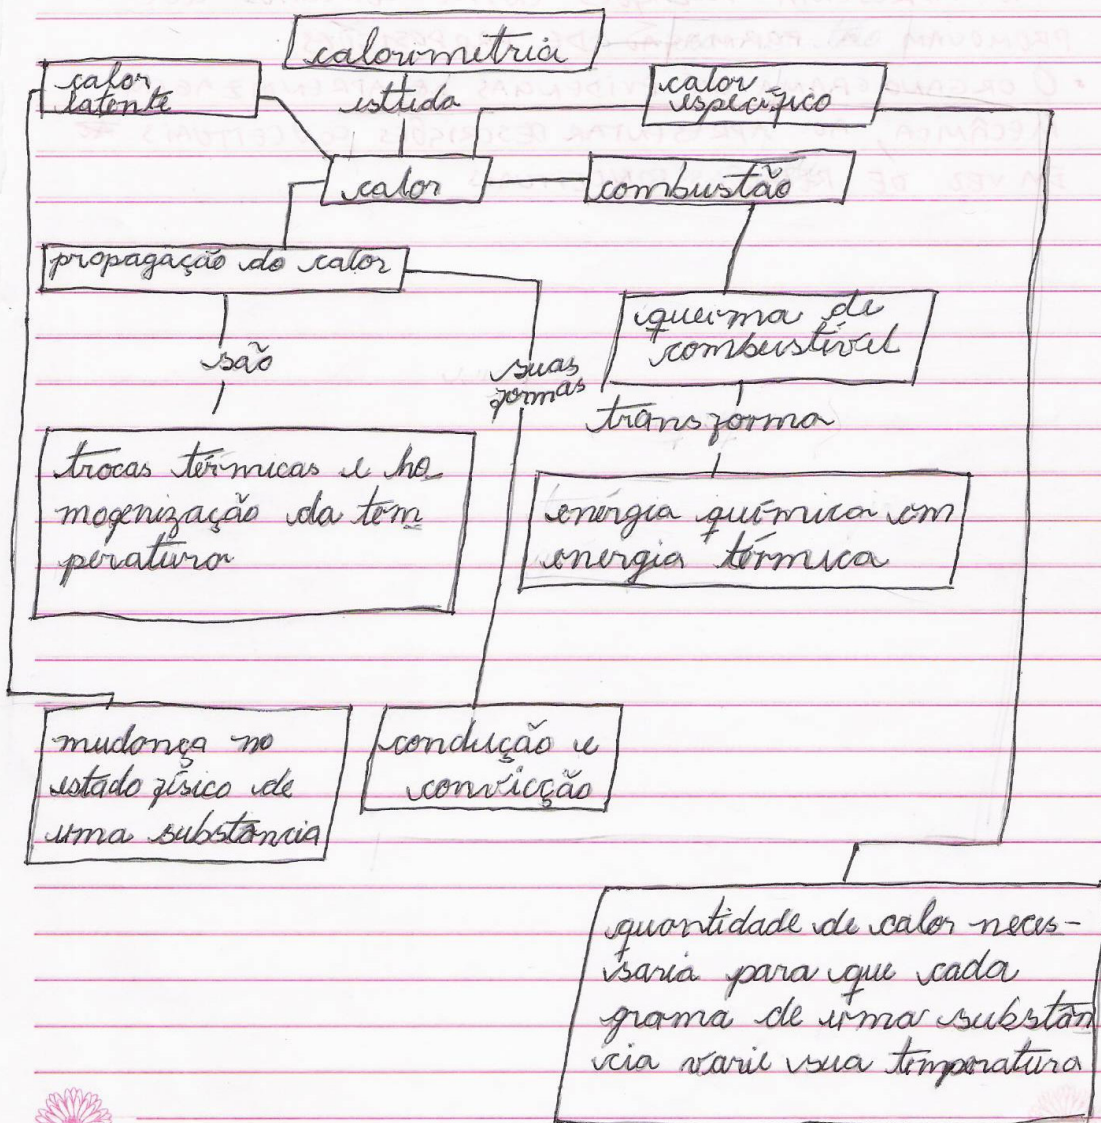 calorimetria
calor
latente
estuda
calor
específico
calor
combustão
propagação do calor
queima de
combustível
são
suas
formas
transforma
trocas térmicas e ho-
mogenização da tem
peratura
energia química em
energia térmica
mudança no
estado físico de
uma substância
condução e
convicção
quantidade de calor neces-
saria para que cada
grama de uma substân
cia varie sua temperatura